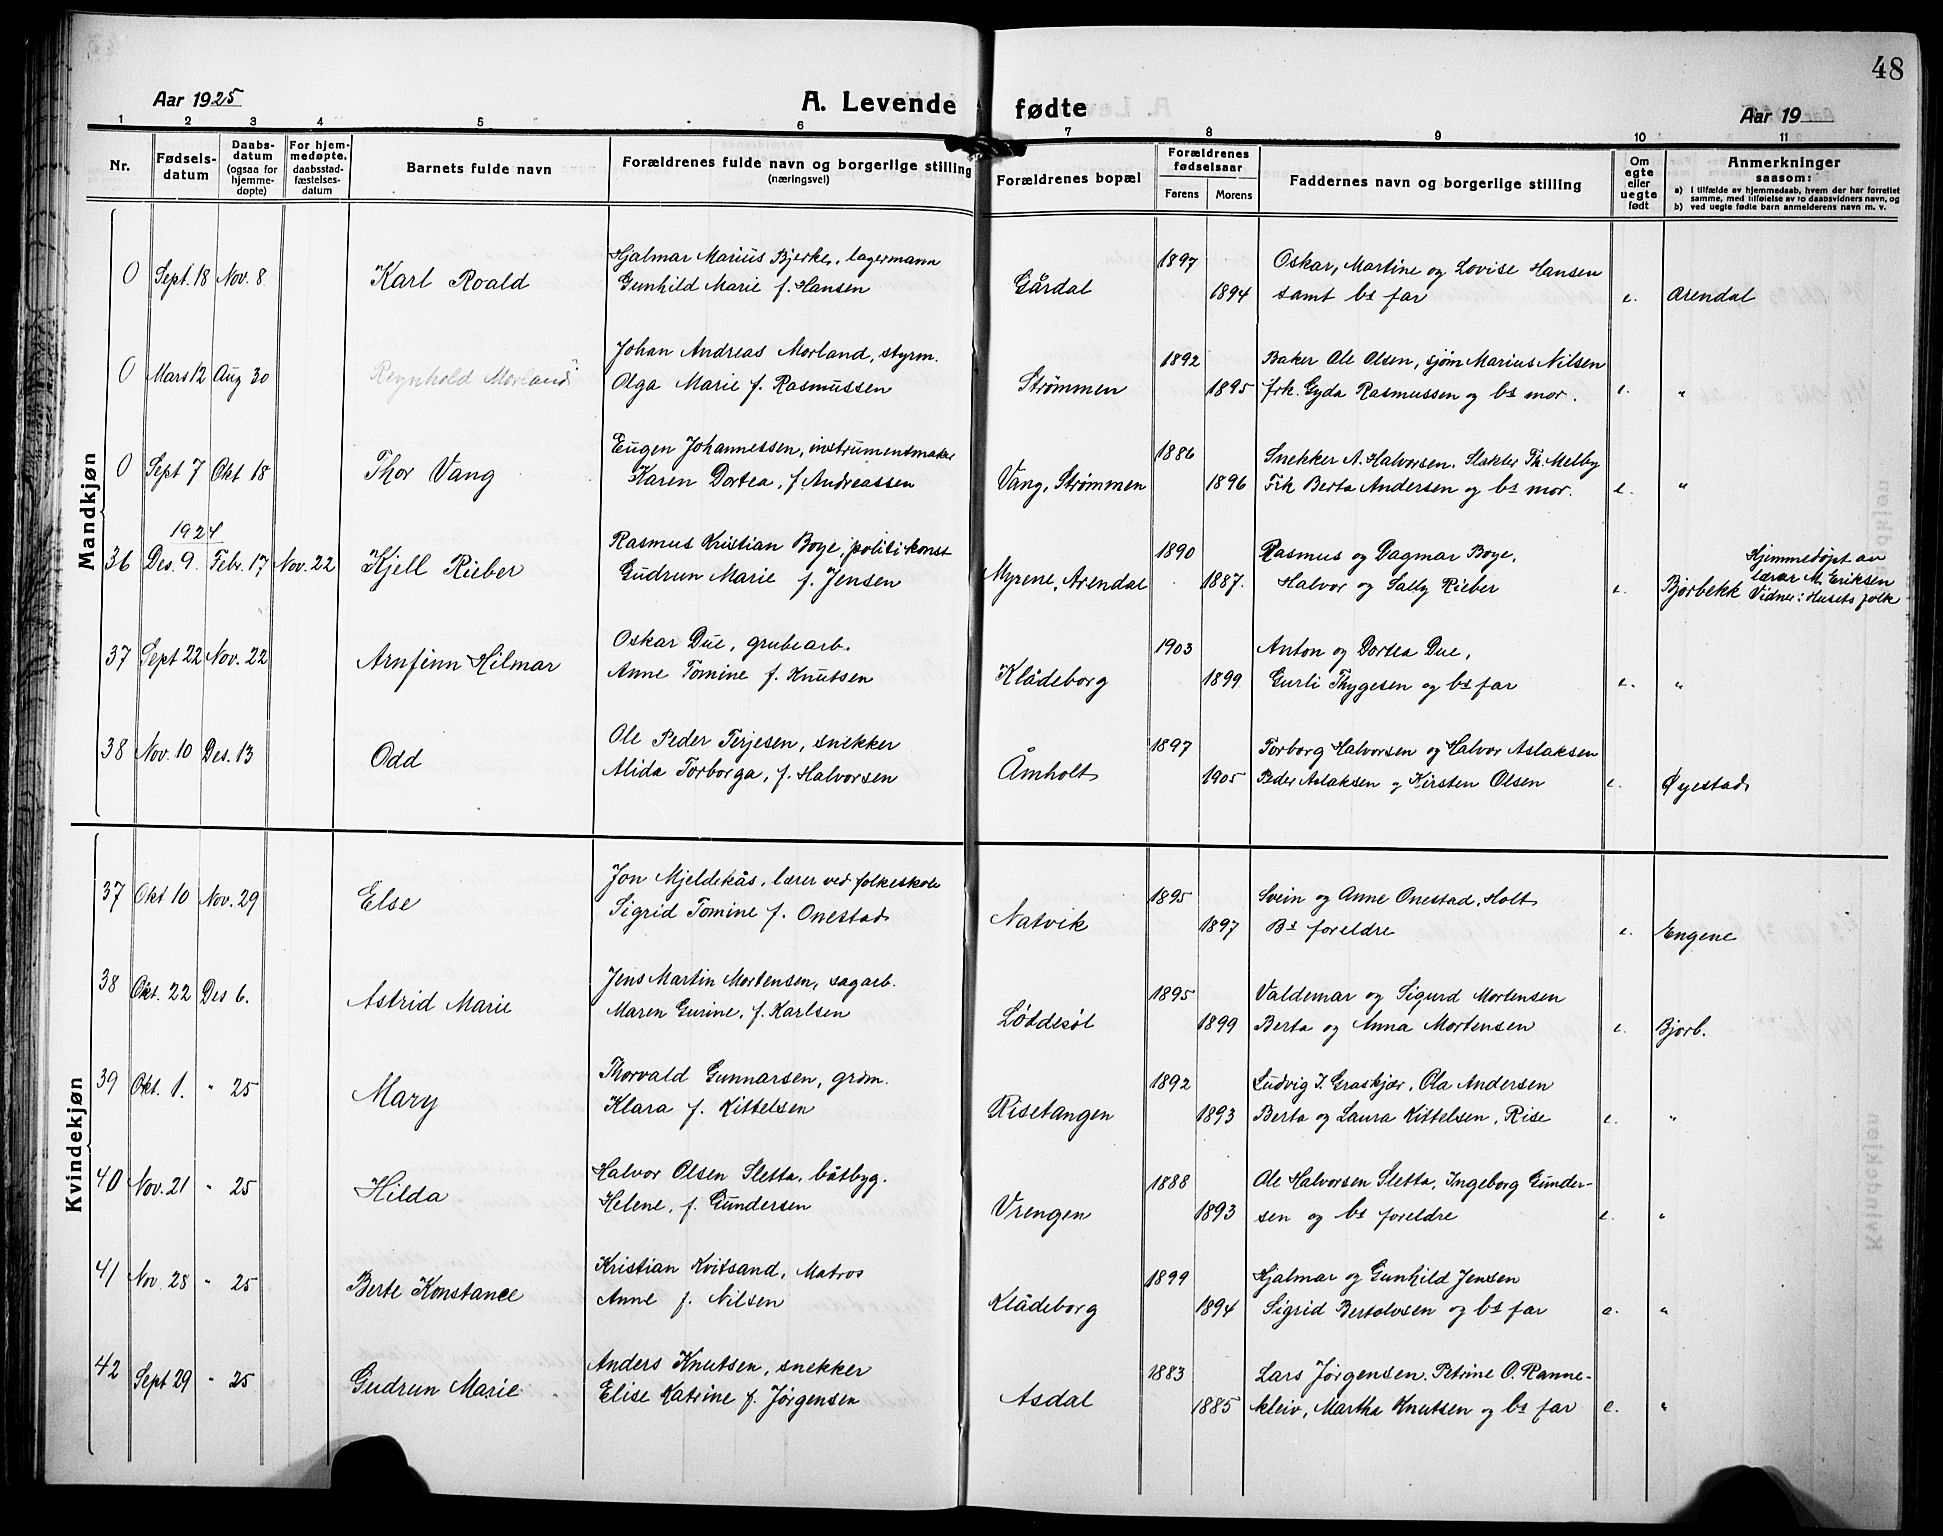 48
Aar 1925
A. Levende fødte
Aar 19
1 2 3 4 5 6 7 8 9 10 11
Nr.
Fødsels-
datum
Daabs-
datum
(ogsaa for
hjemme-
døpte)
For hjem-
medøpte,
daabsstad-
fæstelses-
datum
Barnets fulde navn
Forældrenes fulde navn og borgerlige stilling
(næringsvei)
Forældrenes bopæl
Forældrenes
fødselsaar
Farens Morens
Faddernes navn og borgerlige stilling
Om
egte
eller
uegte
født
Anmerkninger
saasom:
a) i tilfælde av hjemmedaab, hvem der har forrettet
samme, med tilføielse av to daabsvidners navn, og
b) ved uegte fødte barn anmelderens navn m. v.
Mandkjøn
0 Sept. 18 Nov. 8 Karl Roald
Hjalmar Marius Bjerke, lagermann
Gunhild Marie f. Hansen
Gårdal 1897 1894
Oskar, Martine og Lovise Hansen
samt bs far
e. Arendal
0 Mars 12 Aug 30 Reynhold Morland
Johan Andreas Morland, styrm.
Olga Marie f. Rasmussen
Strømmen 1892 1895
Baker Ole Olsen, sjøm Marius Nilsen
frk. Gyda Rasmussen og bs mor.
e. "
0 Sept 7 Okt 18 Thor Vang
Eugen Johannessen, instrumentmaker
Karen Dortea, f. Andreassen
Vang, Strømmen 1886 1896
Snekker A. Halvorsen. Slakter Th. Melby
Frk Berta Andersen og bs mor.
e. "
1924
36 Des. 9. Febr. 17 Nov. 22 Kjell Rieber
Rasmus Kristian Boye, politikonst
Gudrun Marie f. Jensen
Myrene, Arendal 1890 1887.
Rasmus og Dagmar Boye,
Halvor og Sally Rieber
e. Bjorbekk
Hjemmedøpt av
lærer M. Eriksen
Vidner: Husets folk
37 Sept 22 Nov. 22 Arnfinn Hilmar
Oskar Due, grubearb.
Anne Tomine f. Knutsen
Klådeborg 1903 1899
Anton og Dortea Due,
Gurli Thygesen og bs far
e. "
38 Nov. 10 Des. 13 Odd
Ole Peder Terjesen, snekker
Alida Torborga, f. Halvorsen
Åmholt 1897 1905
Torborg Halvorsen og Halvor Aslaksen
Peder Aslaksen og Kirsten Olsen
e. Øyestad
Kvindekjøn
37 Okt 10 Nov. 29 Else
Jon Mjeldekås, lærer ved folkeskole
Sigrid Tomine f. Onestad
Natvik 1895 1897
Svein og Anne Onestad, Holt
Bs foreldre
e. Engene
38 Okt. 22 Des 6. Astrid Marie
Jens Martin Mortensen, sagarb.
Maren Gurine, f. Karlsen
Løddesøl 1895 1899
Valdemar og Sigurd Mortensen
Berta og Anna Mortensen
e. Bjorb.
39 Okt. 1. " 25 Mary
Thorvald Gunnarsen, grdm.
Klara f. Kittelsen
Risetangen 1892 1893
Ludvig I. Graskjær, Ola Andersen
Berta og Laura Kittelsen, Rise
e. "
40 Nov. 21 " 25 Hilda
Halvor Olsen Sletta, båtbyg.
Helene, f. Gundersen
Vrengen 1888 1893
Ole Halvorsen Sletta, Ingeborg Gunder-
sen og bs foreldre
e. "
41 Nov. 28 " 25 Berte Konstance
Kristian Kvitsand, Matros
Anne f. Nilsen
Klådeborg 1899 1894
Hjalmar og Gunhild Jensen
Sigrid Bertelvsen og bs far
e. "
42 Sept 29 " 25 Gudrun Marie
Anders Knutsen, snekker
Elise Katrine f. Jørgensen
Asdal 1883 1885
Lars Jørgensen. Petrine O. Ranne-
kleiv, Martha Knutsen og bs far
e. "